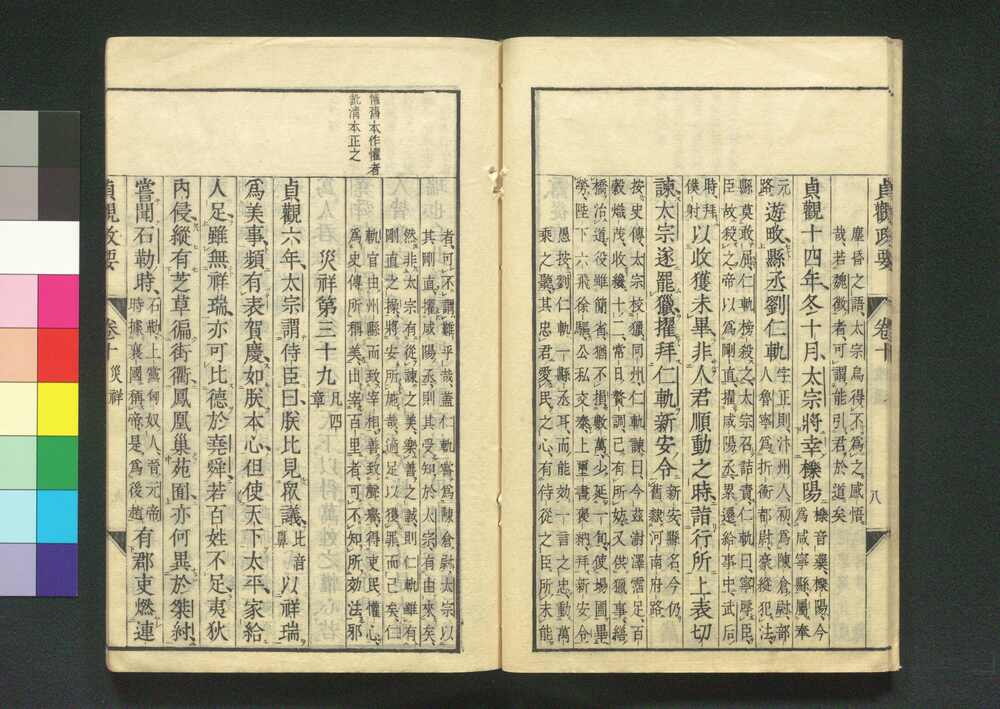 貞觀政要 卷十 八
塵昏之語太宗烏得不爲之感悟
哉若魏徵者可謂能引君於道矣
貞觀十四年冬十月太宗將幸櫟陽櫟音藥櫟陽今爲咸寧縣屬奉
元路遊畋縣丞劉仁軌字正則汴州人初爲陳倉尉部人魯寧爲折衝都尉豪縱犯法
縣莫敢屈仁軌榜殺之太宗召詰責仁軌曰寧辱臣臣故殺之帝以爲剛直擢咸陽丞累遷給事中武后
時拜僕射以收獲未畢非人君順動之時詣行所上表切
諫太宗遂罷獵擢拜仁軌新安令新安縣名今仍舊隸河南府路
按史傳太宗校獵同州仁軌諫曰今茲澍澤霑足百
穀熾茂收纔十二常日贅調已有所妨又供獵事繕
橋治道役雖簡省猶不損數萬少延一旬使場圃畢
勞陛下六飛徐驅公私交泰上璽書褒納拜新安令
愚按劉仁軌一縣丞耳而能効一言之忠動萬
乘之聽其忠君愛民之心有侍從之臣所未能
者可不謂難乎哉蓋仁軌嘗爲陳倉尉太宗以
其剛直擢咸陽丞則其受知於人宗有由來矣
然非太宗有從諫之美樂善之誠則仁軌雖有
剛直之操將安所施哉適足以獲罪而已矣仁
軌官由州縣而致宰相善致聲譽得吏民懽心
爲史傳所稱美出宰百里者可不知所効法邪
懽舊本作懼者
訛淸本正之
災祥第三十九凡四章
貞觀六年太宗謂侍臣曰朕比見衆議比音鼻以祥瑞
爲美事頻有表賀慶如朕本心但使天下太平家給
人足雖無祥瑞亦可比德於堯舜若百姓不足夷狄
內侵縱有芝草徧街衢鳳凰巢苑囿亦何異於桀紂
嘗聞石勒時石勒上黨匈奴人晉元帝時據襄國稱帝是爲後趙有郡吏燃連
貞觀政要 卷十 災祥